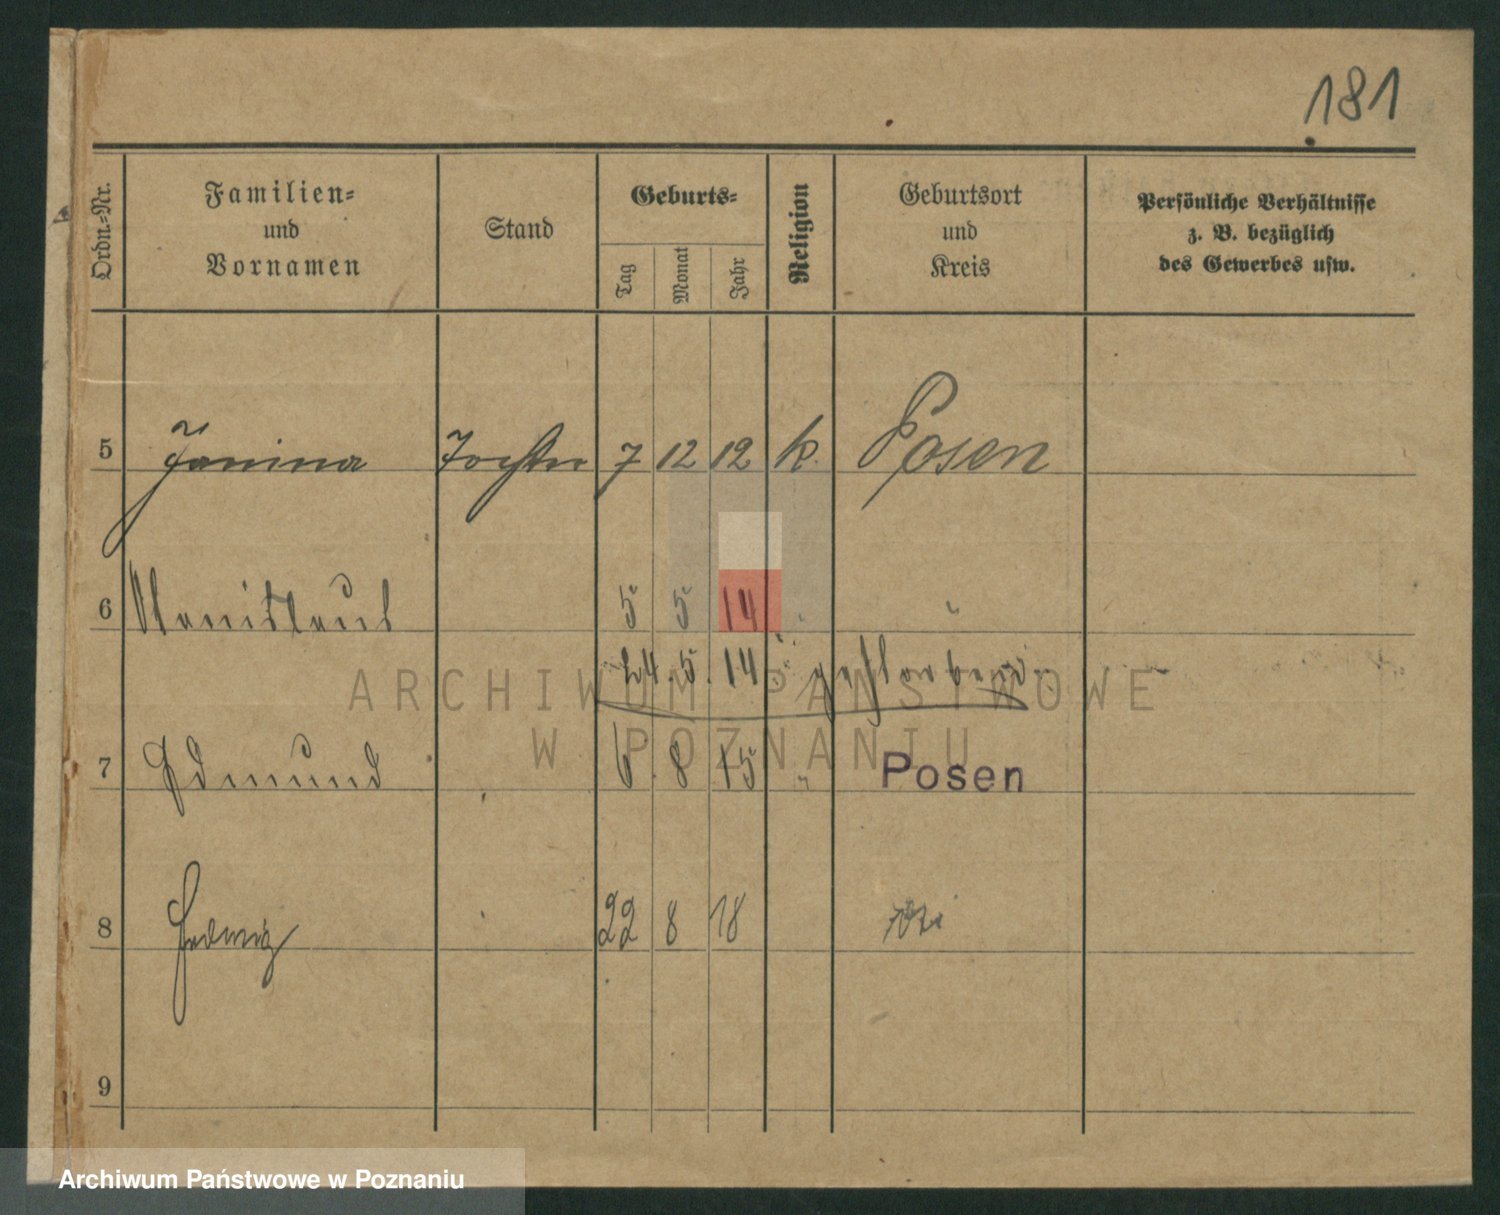 181
Ordn.-Nr.
Familien-
und
Vornamen
Stand
Geburts-
Tag
Monat
Jahr
Religion
Geburtsort
und
Kreis
Persönliche Verhältnisse
z. B. bezüglich
des Gewerbes usw.
5 Janina Tochter 7 12 12 k. Posen
6 Stanislaus 5 5 14 "
24. 5. 14 gestorben
ARCHIWUM PAŃSTWOWE
W POZNANIU
7 Edmund 6. 8 15 " Posen
8 Hedwig 22 8 18
9
Archiwum Państwowe w Poznaniu